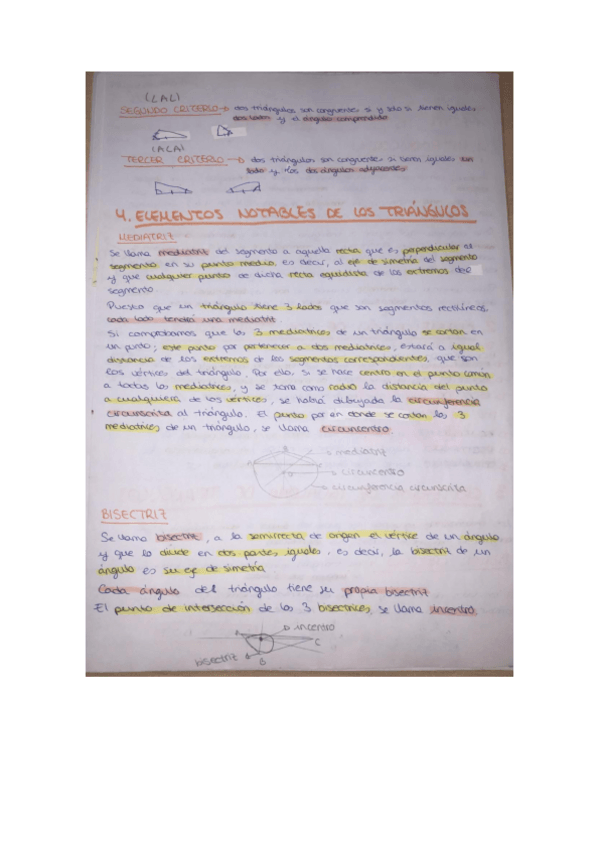 (LAL)
SEGUNDO CRITERIO → dos triángulos son congruentes si y solo si tienen iguales
dos lados y el ángulo comprendido
(ALA)
TERCER CRITERIO → dos triángulos son congruentes si tienen iguales un
lado y los dos ángulos adyacentes
4. ELEMENTOS NOTABLES DE LOS TRIÁNGULOS
MEDIATRIZ
Se llama mediatriz del segmento a aquella recta que es perpendicular al
segmento en su punto medio. Es decir, al eje de simetría del segmento
y que cualquier punto de dicha recta equidista de los extremos del
segmento
Puesto que un triángulo tiene 3 lados que son segmentos rectilíneos,
cada lado tendrá una mediatriz.
Si comprobamos que las 3 mediatrices de un triángulo se cortan en
un punto, este punto por pertenecer a dos mediatrices, estará a igual
distancia de los extremos de los segmentos correspondientes, que son
los vértices del triángulo. Por ello, si se hace centro en el punto común
a todas las mediatrices, y se toma como radio la distancia del punto
a cualquiera de los vértices, se habrá dibujado la circunferencia
circunscrita al triángulo. El punto por en donde se cortan las 3
mediatrices de un triángulo, se llama circuncentro.
B
mediatriz
A
circuncentro
circunferencia circunscrita
BISECTRIZ
Se llama bisectriz, a la semirrecta de origen el vértice de un ángulo
y que lo divide en dos partes iguales, es decir, la bisectriz de un
ángulo es su eje de simetría
Cada ángulo del triángulo tiene su propia bisectriz.
El punto de intersección de las 3 bisectrices, se llama incentro.
incentro
C
bisectriz
B